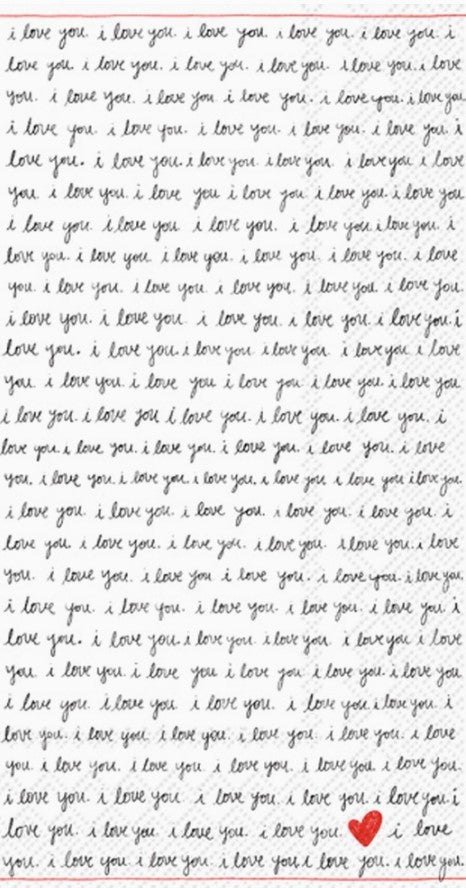 i love you. i love you. i love you. i love you. i love you. i
love you. i love you. i love you. i love you. i love you. i love
you. i love you. i love you i love you. i love you. i love you
i love you. i love you. i love you. i love you. i love you. i
love you. i love you. i love you. i love you i love you i love
you i love you. i love you i love you i love you. i love you
i love you. i love you i love you. i love you i love you. i
love you. i love you i love you. i love you. i love you. i love
you. i love you. i love you. i love you. i love you i love you.
i love you. i love you. i love you. i love you. i love you. i
love you. i love you. i love you. i love you. i love you i love
you. i love you. i love you i love you i love you. i love you
i love you. i love you i love you. i love you. i love you. i
love you. i love you. i love you. i love you. i love you. i love
you. i love you. i love you. i love you. i love you i love you i love you.
i love you. i love you. i love you. i love you. i love you. i
love you. i love you. i love you. i love you. i love you. i love
you. i love you. i love you i love you. i love you. i love you
i love you. i love you. i love you. i love you. i love you. i
love you. i love you. i love you. i love you. i love you i love
you i love you. i love you i love you i love you. i love you
i love you. i love you i love you. i love you i love you. i
love you. i love you i love you. i love you. i love you. i love
you. i love you. i love you. i love you. i love you. i love you.
i love you. i love you. i love you. i love you. i love you. i
love you. i love you. i love you. i love you. i love
you. i love you. i love you. i love you. i love you. i love you.